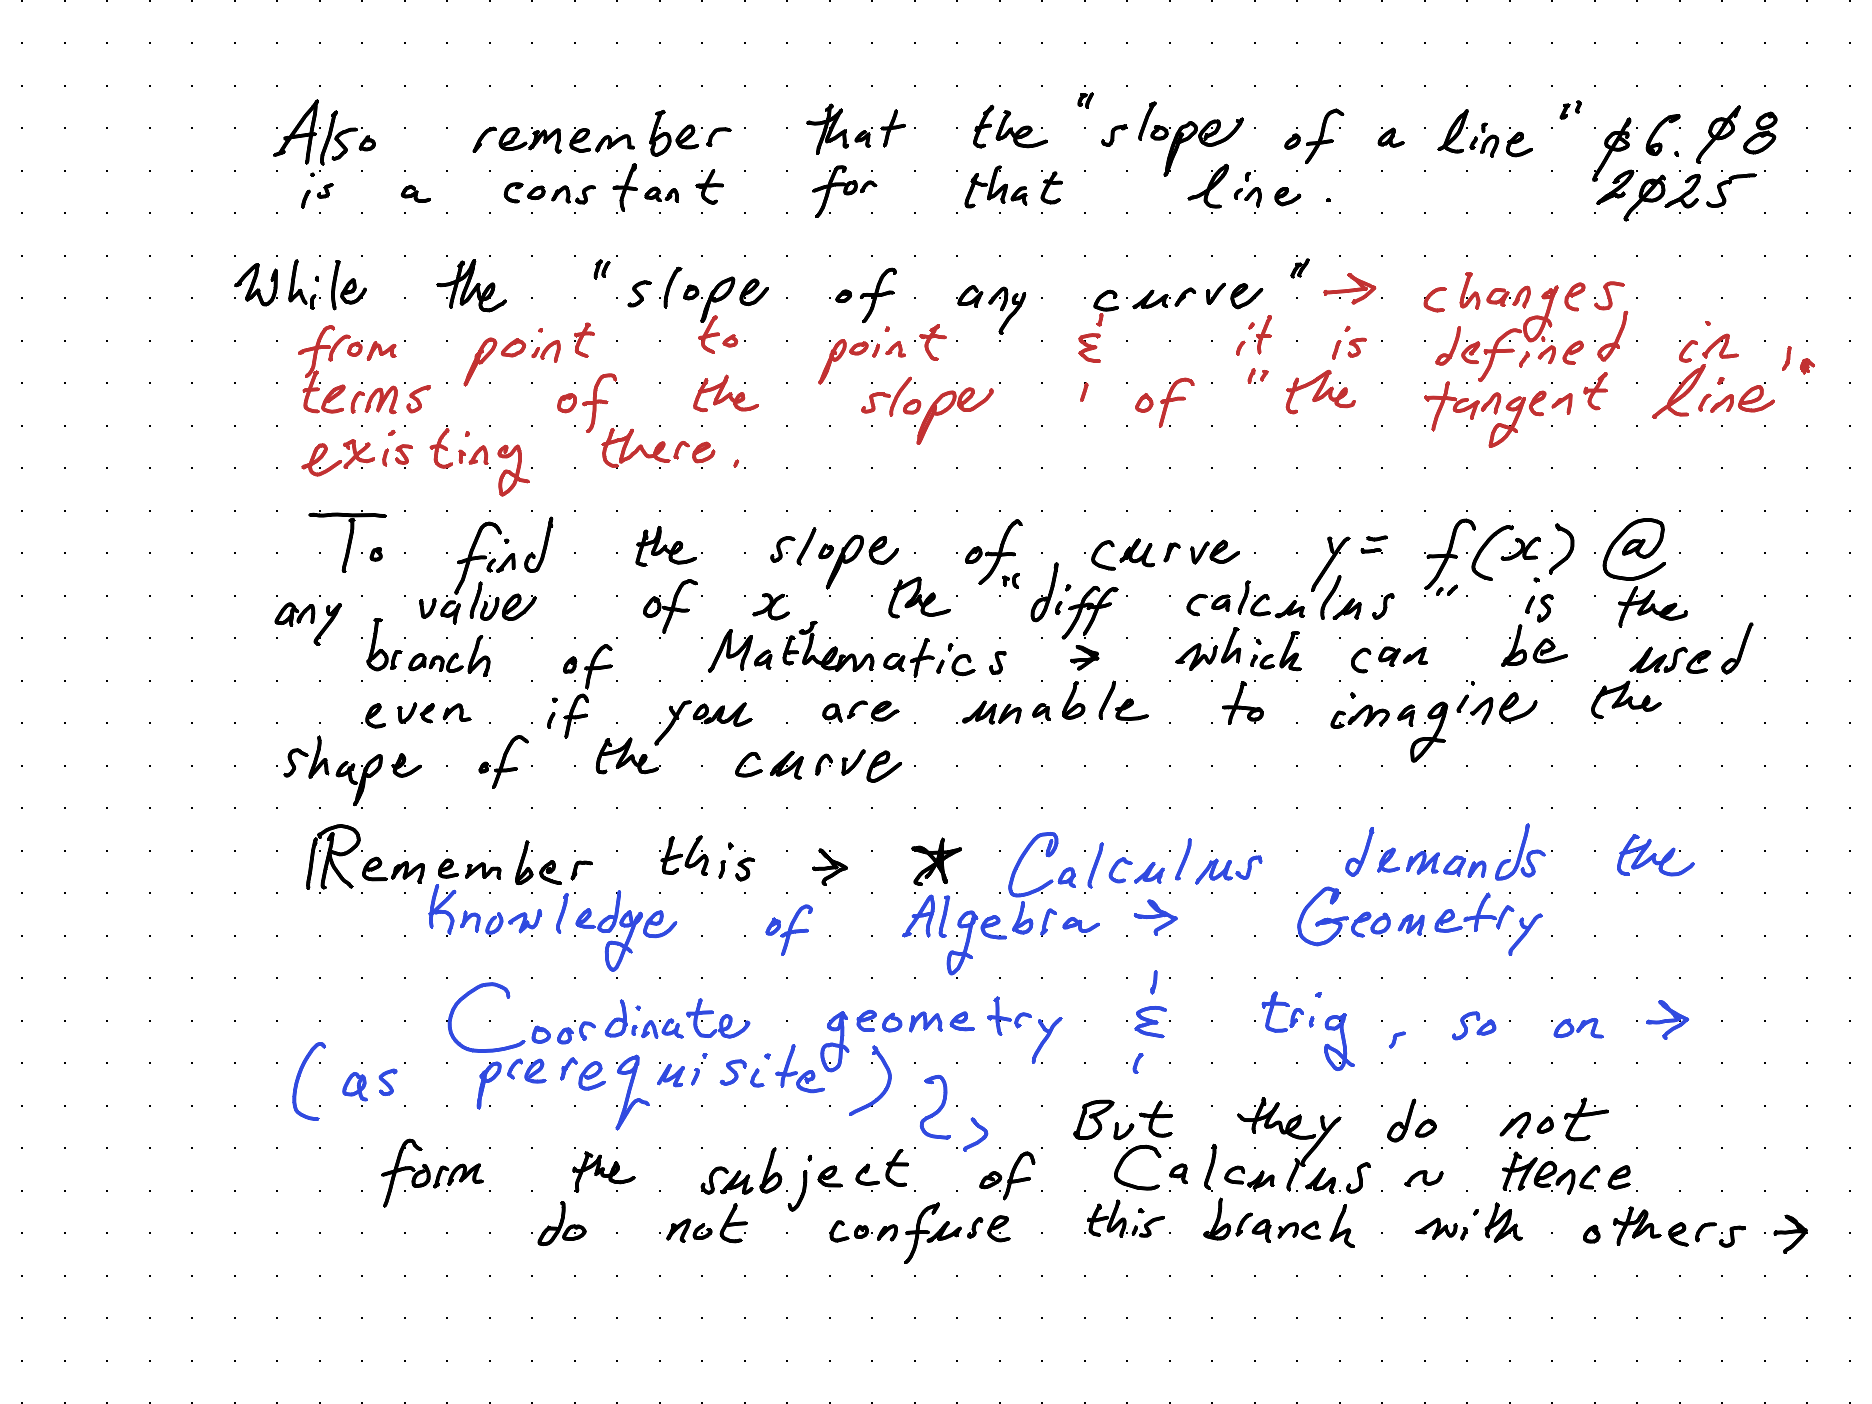 Also remember that the "slope of a line" ø6.ø8
is a constant for that line. 2ø25
While the "slope of any curve" → changes
from point to point & it is defined in
terms of the slope of "the tangent line"
existing there.
To find the slope of curve y = f(x) @
any value of x, the "diff calculus" is the
branch of Mathematics → which can be used
even if you are unable to imagine the
shape of the curve
Remember this → * Calculus demands the
Knowledge of Algebra → Geometry
Coordinate geometry & trig, so on →
(as prerequisite)
But they do not
form the subject of Calculus ~ Hence
do not confuse this branch with others →